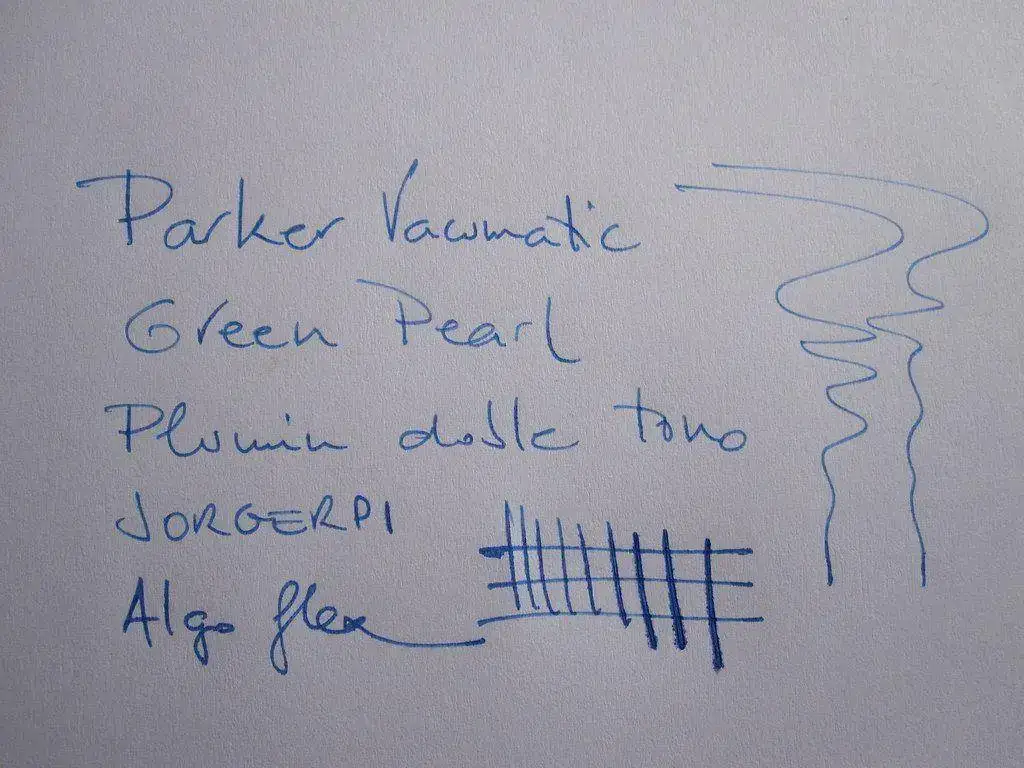 Parker Vacumatic
Green Pearl
Plumin doble tono
JORGERPI
Algo flex